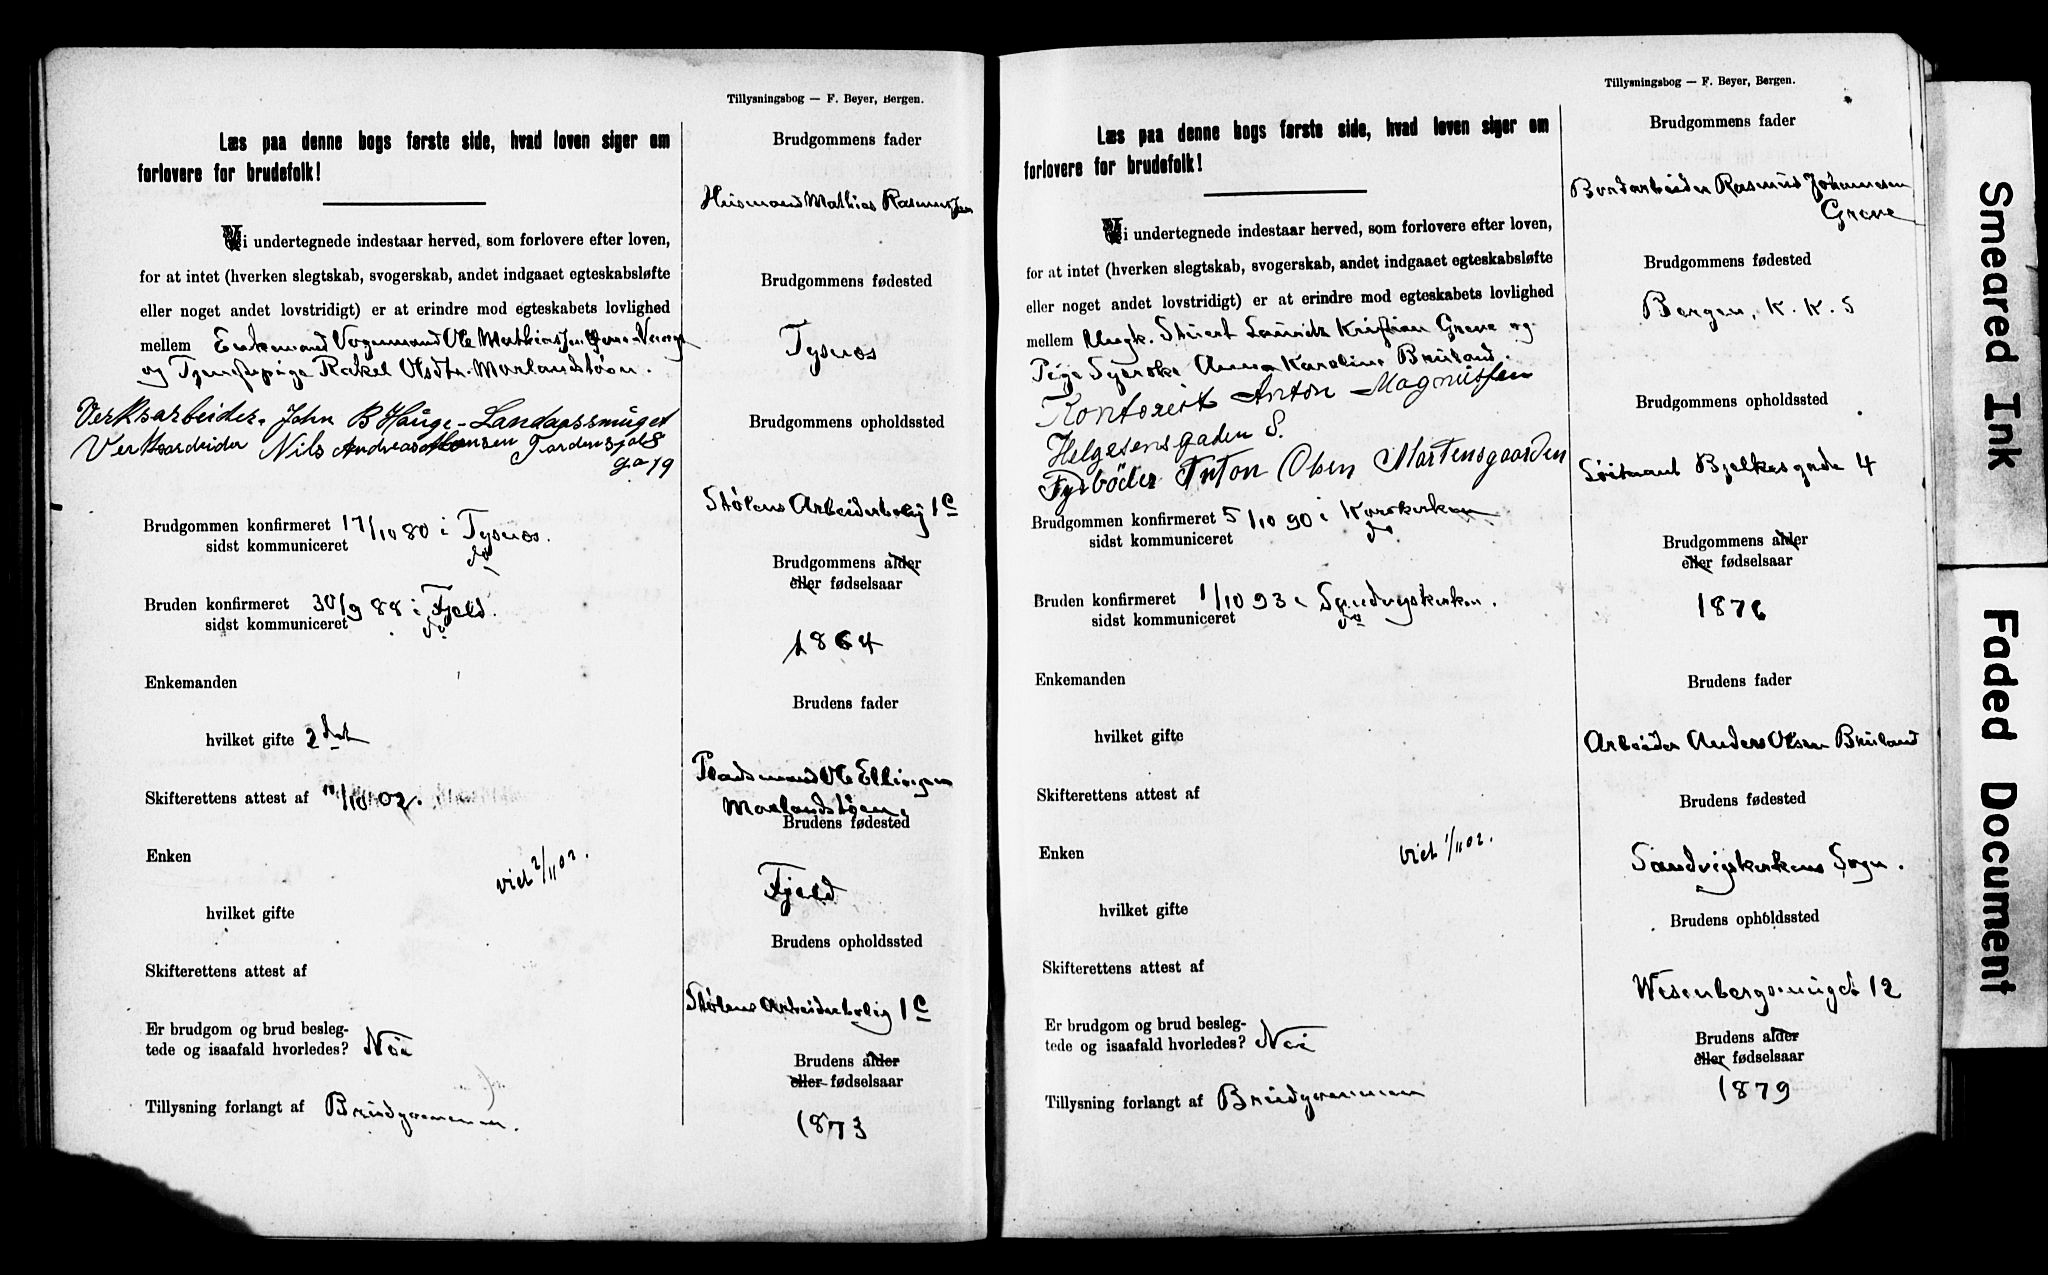 Tillysningsbog — F. Beyer, Bergen.
Læs paa denne bogs første side, hvad loven siger om
forlovere for brudefolk!
Vi undertegnede indestaar herved, som forlovere efter loven,
for at intet (hverken slegtskab, svogerskab, andet indgaaet egteskabsløfte
eller noget andet lovstridigt) er at erindre mod egteskabets lovlighed
mellem Enkemand Vognmand Ole Mathias
og Tjenestepige Rakel Olsdtr. Marlandstøen.
Verksarbeider. John B Hauge - Landaassmuget
Verksarbeider Nils Andreas Monsen
ga 19
Brudgommen konfirmeret 17/10 80 i Tysnes.
sidst kommuniceret do
Bruden konfirmeret 30/9 88 i Fjeld.
sidst kommuniceret do
Enkemanden
hvilket gifte 2det
Skifterettens attest af 10/10 02.
Enken
viet 2/11 02.
hvilket gifte
Skifterettens attest af
Er brudgom og brud besleg-
tede og isaafald hvorledes? Nei
Tillysning forlangt af Brudgommen.
Brudgommens fader
Husmand Mathias Rasmussen
Brudgommens fødested
Tysnes
Brudgommens opholdssted
Stølens Arbeiderbolig 1c
Brudgommens alder
eller fødselsaar
1864
Brudens fader
Pladsmand Ole Ellingsen
Marlandstøen.
Brudens fødested
Fjeld
Brudens opholdssted
Stølens Arbeiderbolig 1c
Brudens alder
eller fødselsaar
1873
Tillysningsbog — F. Beyer, Bergen.
Læs paa denne bogs første side, hvad loven siger om
forlovere for brudefolk!
Vi undertegnede indestaar herved, som forlovere efter loven,
for at intet (hverken slegtskab, svogerskab, andet indgaaet egteskabsløfte
eller noget andet lovstridigt) er at erindre mod egteskabets lovlighed
mellem Ungk. Stuert Lauritz Kristian Greve og
Pige Syerske Anna Karoline Bruland.
Kontorist Anton Magnussen
Helgesensgaden 8.
Fyrbøder Anton Olsen Martensgaarden
Brudgommen konfirmeret 5/10 90 i Korskirken
sidst kommuniceret do
Bruden konfirmeret 1/10 93 i Sandvigskirken.
sidst kommuniceret do
Enkemanden
hvilket gifte
Skifterettens attest af
Enken
viet 1/11 02.
hvilket gifte
Skifterettens attest af
Er brudgom og brud besleg-
tede og isaafald hvorledes? Nei
Tillysning forlangt af Brudgommen
Brudgommens fader
Bordarbeider Rasmus Johannesen
Greve
Brudgommens fødested
Bergen, K. K. S
Brudgommens opholdssted
Løitnant Bjelkesgade 4
Brudgommens alder
eller fødselsaar
1876
Brudens fader
Arbeider Anders Olsen Bruland
Brudens fødested
Sandvigskirkens Sogn.
Brudens opholdssted
Wesenbergsmuget 12
Brudens alder
eller fødselsaar
1879
Smeared Ink
Faded Document